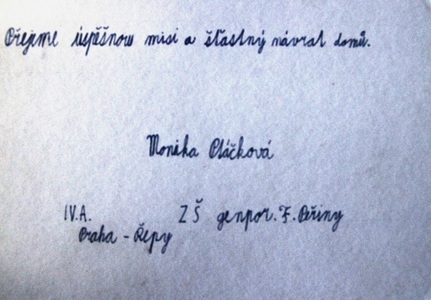 Přejeme úspěšnou misi a šťastný návrat domů.
Monika Ptáčková
IV.A. ZŠ genpor. F. Peřiny
Praha - Řepy